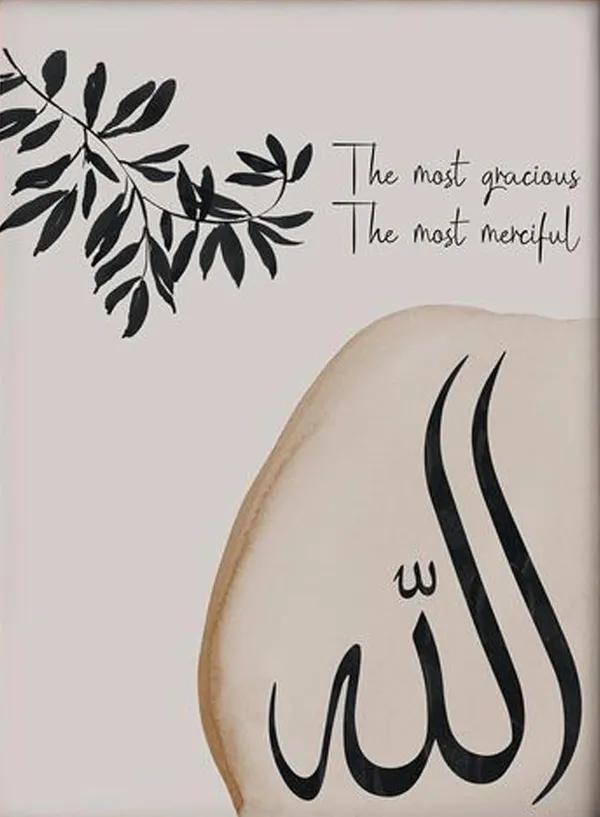 The most gracious
The most merciful
الله